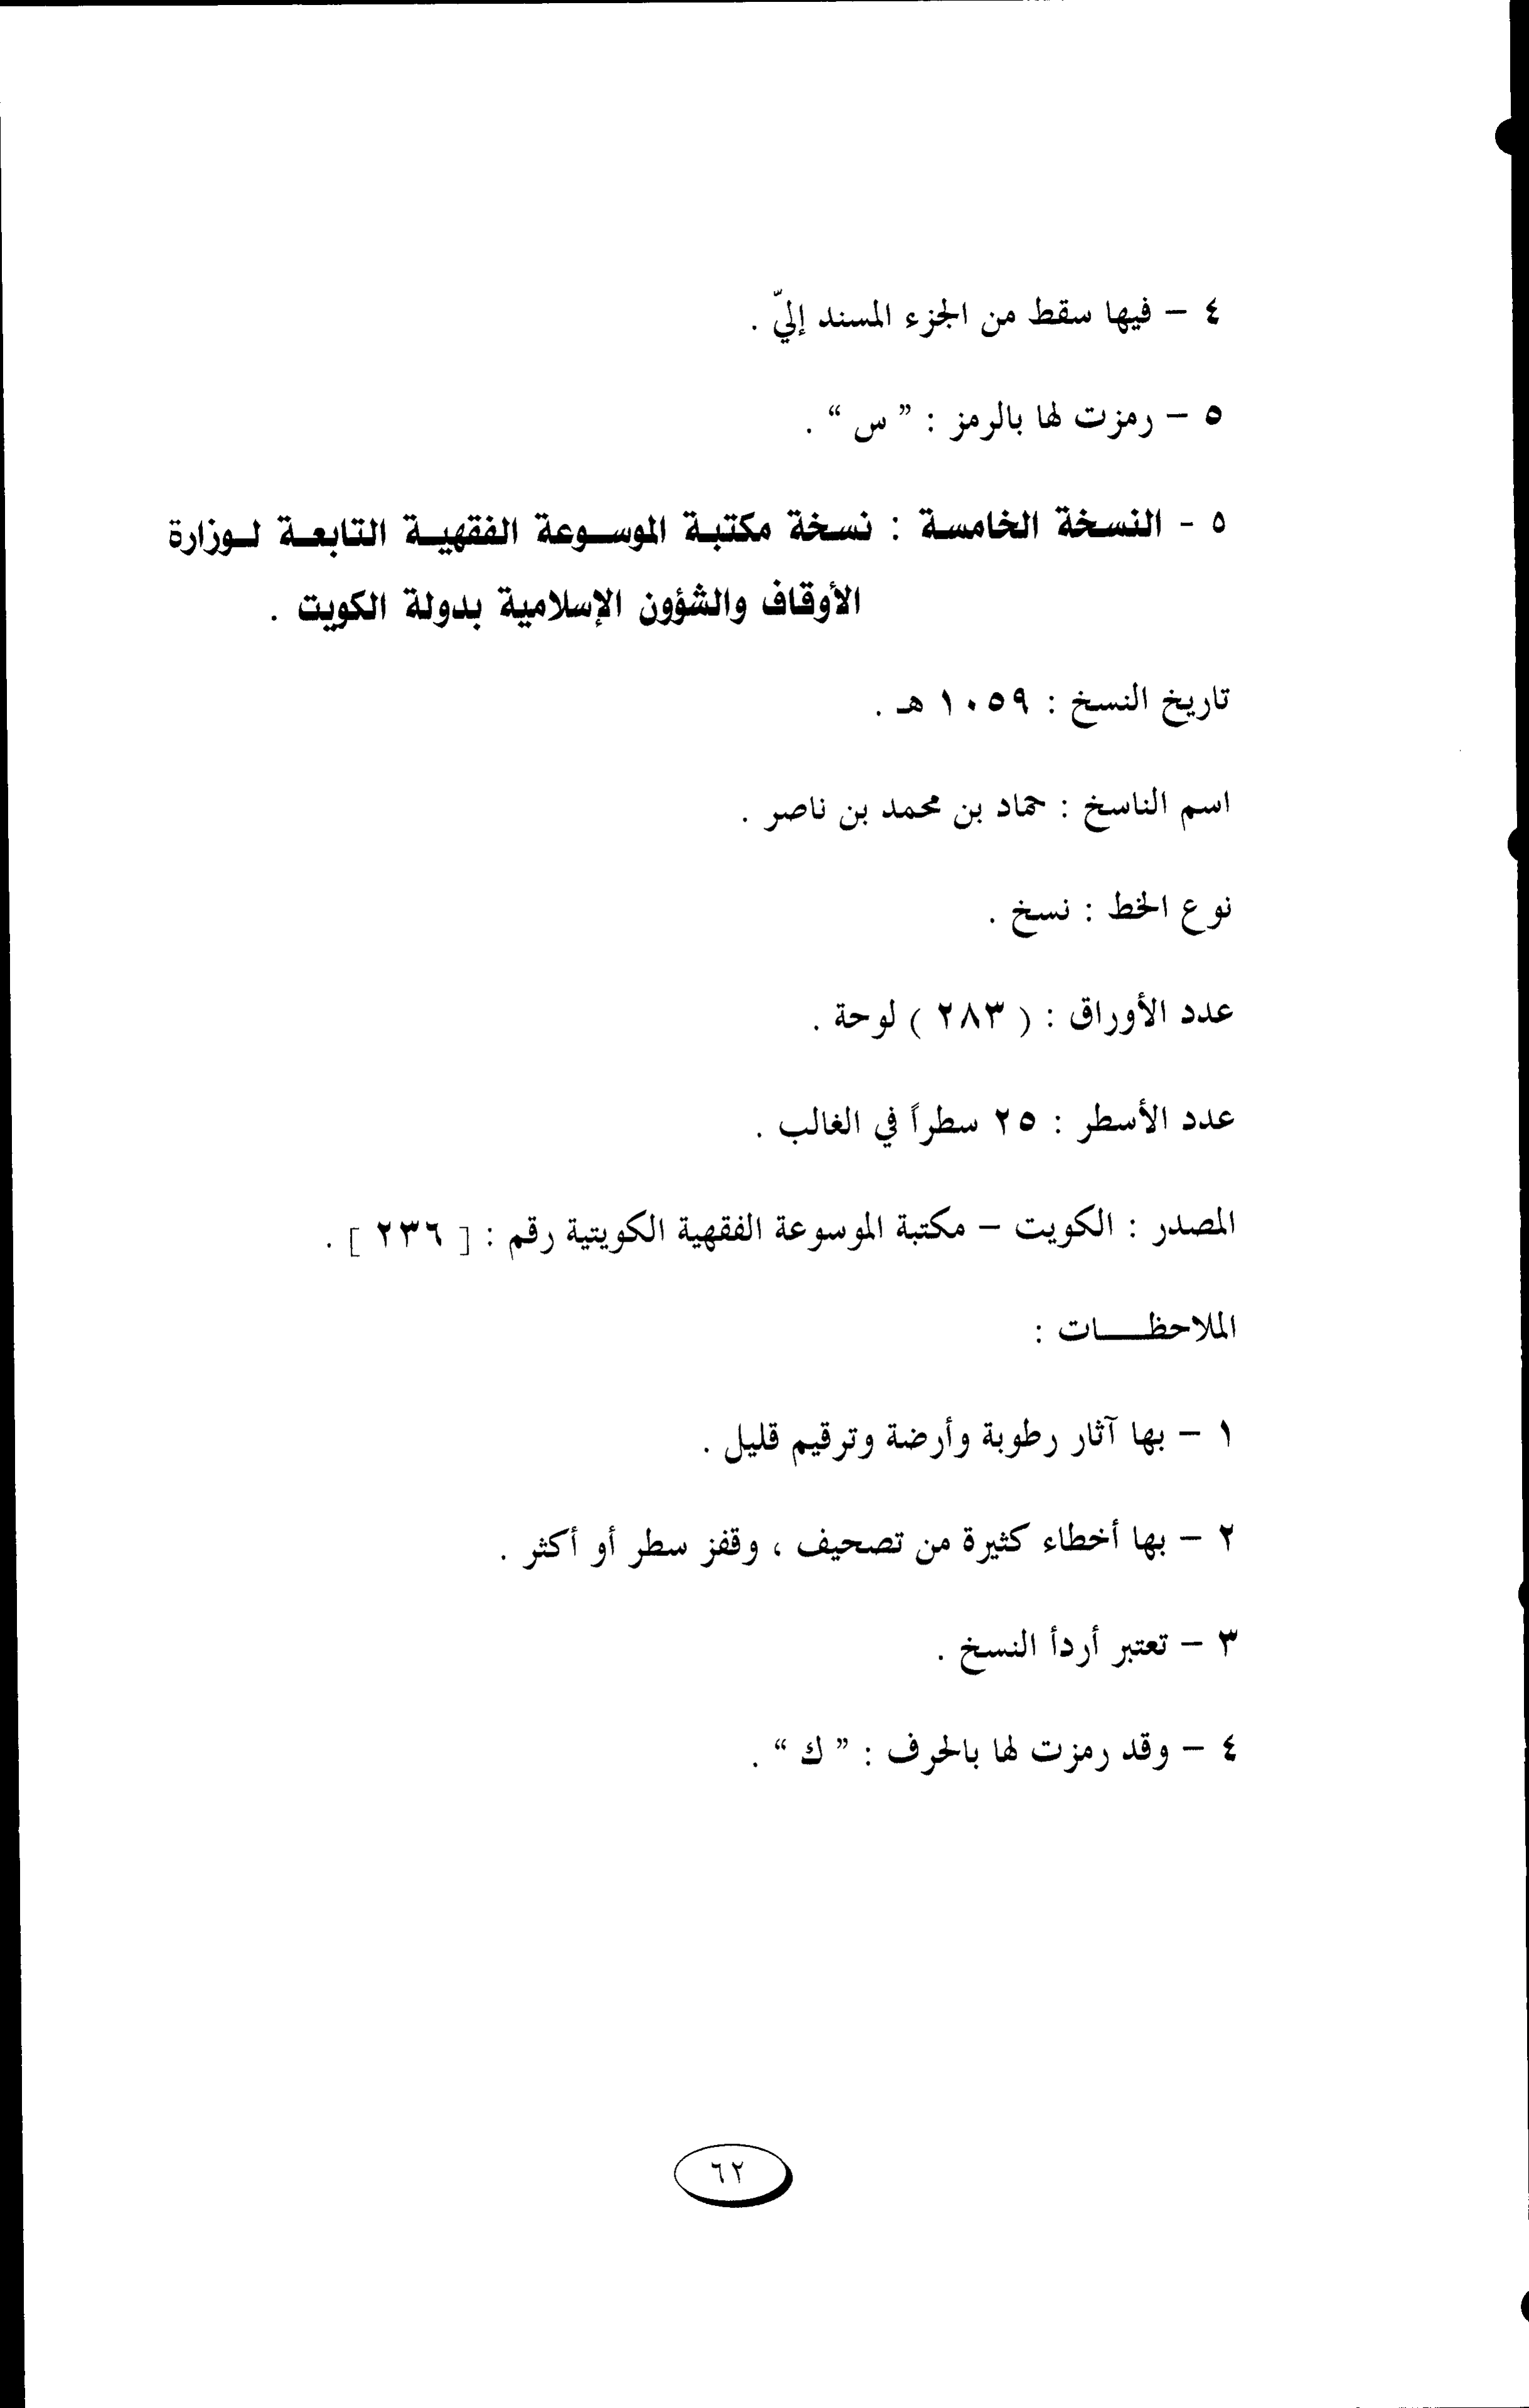 ٤ – فيها سقط من الجزء المسند إليّ .
٥ – رمزت لها بالرمز : " س " .
٥ - النسخة الخامسة : نسخة مكتبة الموسوعة الفقهية التابعة لوزارة
الأوقاف والشؤون الإسلامية بدولة الكويت .
تاريخ النسخ : ١٠٥٩ هـ .
اسم الناسخ : حماد بن محمد بن ناصر .
نوع الخط : نسخ .
عدد الأوراق : ( ٢٨٣ ) لوحة .
عدد الأسطر : ٢٥ سطراً في الغالب .
المصدر : الكويت – مكتبة الموسوعة الفقهية الكويتية رقم : [ ٢٣٦ ] .
الملاحظات :
١ – بها آثار رطوبة وأرضة وترقيم قليل .
٢ – بها أخطاء كثيرة من تصحيف ، وقفز سطر أو أكثر .
٣ – تعتبر أردأ النسخ .
٤ – وقد رمزت لها بالحرف : " ك " .
٦٢